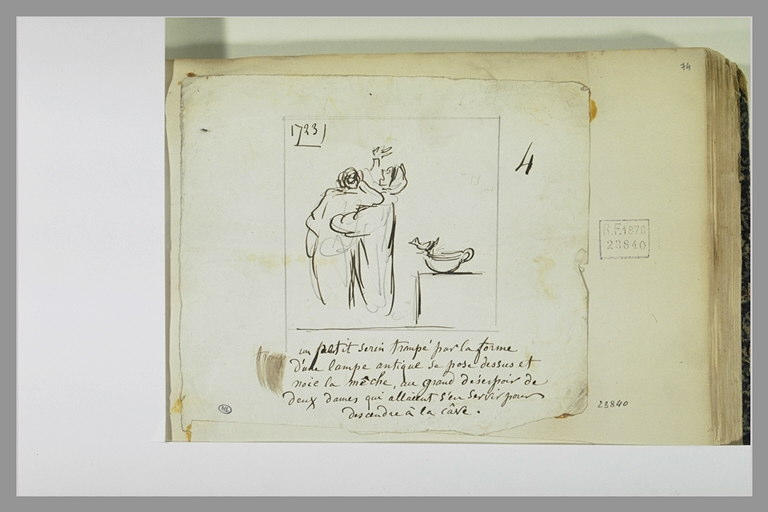 74
1723
4
R.F.1870
23840
un petit serin trompé par la forme
d'une lampe antique se pose dessus et
noie la mêche, au grand désespoir de
deux dames qui allaient s'en servir pour
descendre à la câve.
23840
ML